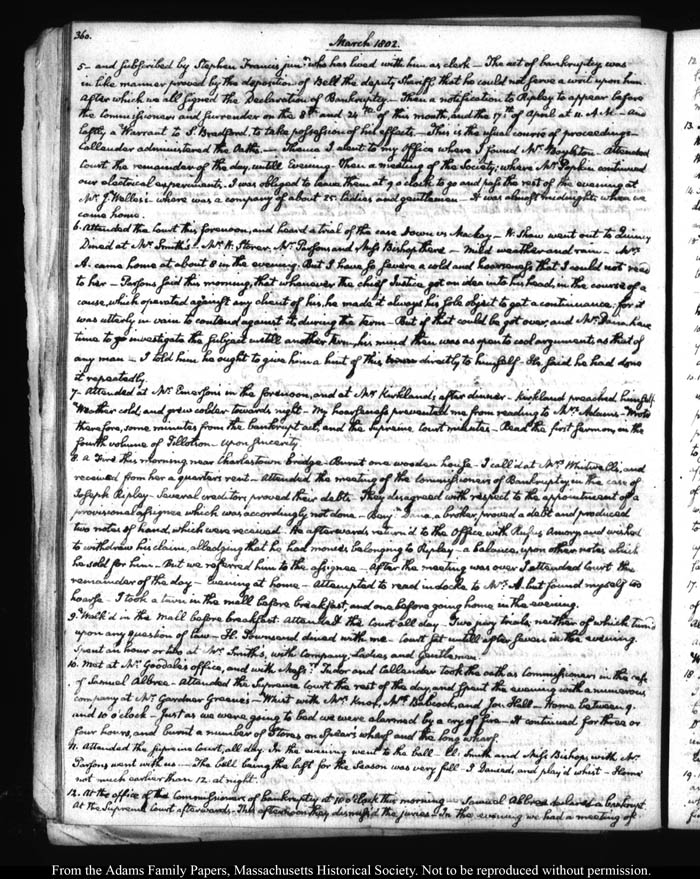 360.
March 1802.
5— and subscribed by Stephen Francis junr. who has lived with him as clerk — The act of bankruptcy was
in like manner proved by the deposition of Bell the deputy sheriff that he could not serve a writ upon him
After which we all signed the Declaration of Bankruptcy — Then a notification to Ripley to appear before
the Commissioners and surrender on the 8th and 24th of this month, and the 17th of April at 11. A.M. — And
lastly a Warrant to S. Bradford, to take possession of his effects — This is the usual course of proceedings —
Callender administered the Oaths — Thence I went to my Office where I found Mr. Boylston — Attended
Court the remainder of the day, untill Evening — Then a meeting of the Society; where Mr. Popkin continued
our electrical experiments. I was obliged to leave them at 9 o'clock to go and pass the rest of the evening at
Mr. J. Welles's — where was a company of about 25 ladies and gentlemen — It was almost midnight when we
came home.
6. Attended the Court this forenoon, and heard a trial of the case vs Mackay — W. Shaw went out to Quincy
Dined at Mr. Smith's. Mr. H. Storer, Mr. Parsons and Miss Bishop there — Mild weather and rain — Mrs.
A. came home at about 8 in the evening. But I have so severe a cold and hoarseness that I could not read
to her — Parsons said this morning, that whenever the chief Justice got an idea into his head, in the course of a
cause, which operated against any client of his, he made it always his sole object to get a continuance; for it
was utterly in vain to contend against it, during the term — But if that could be got over, and Mr. Dana have
time to go investigate the subject untill another term, his mind then was as open to cool argument as that of
any man — I told him he ought to give him a hint of this directly to himself — He said he had done
it repeatedly.
7— Attended at Mr. Emerson's in the forenoon, and at Mr. Kirkland's, after dinner — Kirkland preached himself.
Weather cold, and grew colder towards night — My hoarseness prevented me from reading to Mrs. Adams — Wrote
therefore, some minutes from the bankrupt act, and the Supreme Court minutes — Read the first sermon in the
fourth volume of Tillotson — upon sincerity
8. A Fire this morning near Charlestown bridge — Burnt one wooden house — I call'd at Mrs. Whitwell's, and
received from her a quarters rent — Attended the meeting of the Commissioners of Bankruptcy, in the case of
Joseph Ripley — Several creditors, proved their debts — They disagreed with respect to the appointment of a
provisional assignee which was accordingly not done — a broker, proved a debt and produced
two notes of hand, which were received. He afterwards return'd to the Office with Rufus Amory and wished
to withdraw his claim, alledging that he had monies belonging to Ripley — a balance, upon other notes which
he sold for him — But we referred him to the assignee — After the meeting was over I attended Court the
remainder of the day — Evening at home — Attempted to read to Mrs. A. but found myself too
hoarse — I took a turn in the mall before breakfast, and one before going home in the evening.
9. Walk'd in the Mall before breakfast. Attended the Court all day — Two jury trials, neither of which turn'd
upon any question of law — H. Townsend dined with me — Court sat untill after seven in the evening.
Spent an hour or two at Mr. Smith's, with Company, Ladies and Gentlemen.
10. Met at Mr. Goodale's office, and with Messrs. Tudor and Callender took the oath as Commissioners in the case
of Samuel Albree — Attended the Supreme Court the rest of the day, and spent the evening with a numerous
company at Mr. Gardner Greene's — Whist with Mrs. Knox, Mrs. Babcock, and Jos. Hall — Home between 9.
and 10 o'clock — Just as we were going to bed we were alarmed by a cry of fire — It continued for three or
four hours, and burnt a number of Stores on Spear's wharf and the long wharf.
11. Attended the supreme Court, all day. In the evening went to the ball — W. Smith and Miss Bishop, with Mr.
Parsons went with us — The ball being the last for the season was very full — I danced, and play'd whist — Home
not much earlier than 12. at night.
12. At the office of the Commissioners of bankruptcy at 10 o'clock this morning — Samuel Albree declared a bankrupt
At the Supreme Court afterwards — This afternoon they dismiss'd the juries — In the evening we had a meeting of
From the Adams Family Papers, Massachusetts Historical Society. Not to be reproduced without permission.